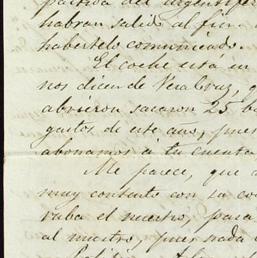 partida del urgentifer
habran salido al fin
haberlelo comunicado.
El coche está en
nos dicen de Veracruz, q
abrieron sacaron 25 ba
gastos de este año, pues
abonamos á tu cuenta
Me parece, que
muy contento con la co
raba el nuestro, para
al nuestro, pues nada